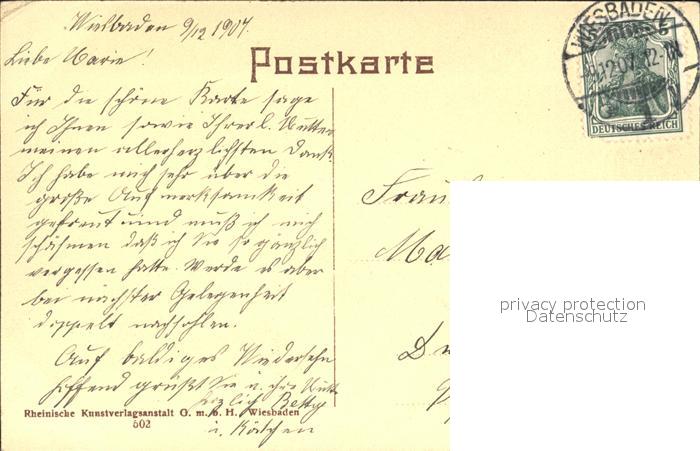 Wiesbaden 9/12 1907.
Liebe Marie!
Postkarte
WIESBADEN
12.07.12-1N.
DEUTSCHES REICH
Für die schöne Karte sage
ich Ihnen sowie Ihrer l. Mutter
meinen allerherzlichsten Dank.
Ich habe mich sehr über die
große Aufmerksamkeit
gefreut und muß ich mich
schähmen daß ich Sie so gänzlich
vergessen hatte. Werde es aber
bei nächster Gelegenheit
doppelt nachhohlen.
Auf baldiges Wiedersehn
hoffend grüßt Sie u. ihre Mutt.
herzlich Betty
u. Kätchen
Rheinische Kunstverlagsanstalt G. m. b. H. Wiesbaden
502
privacy protection
Datenschutz